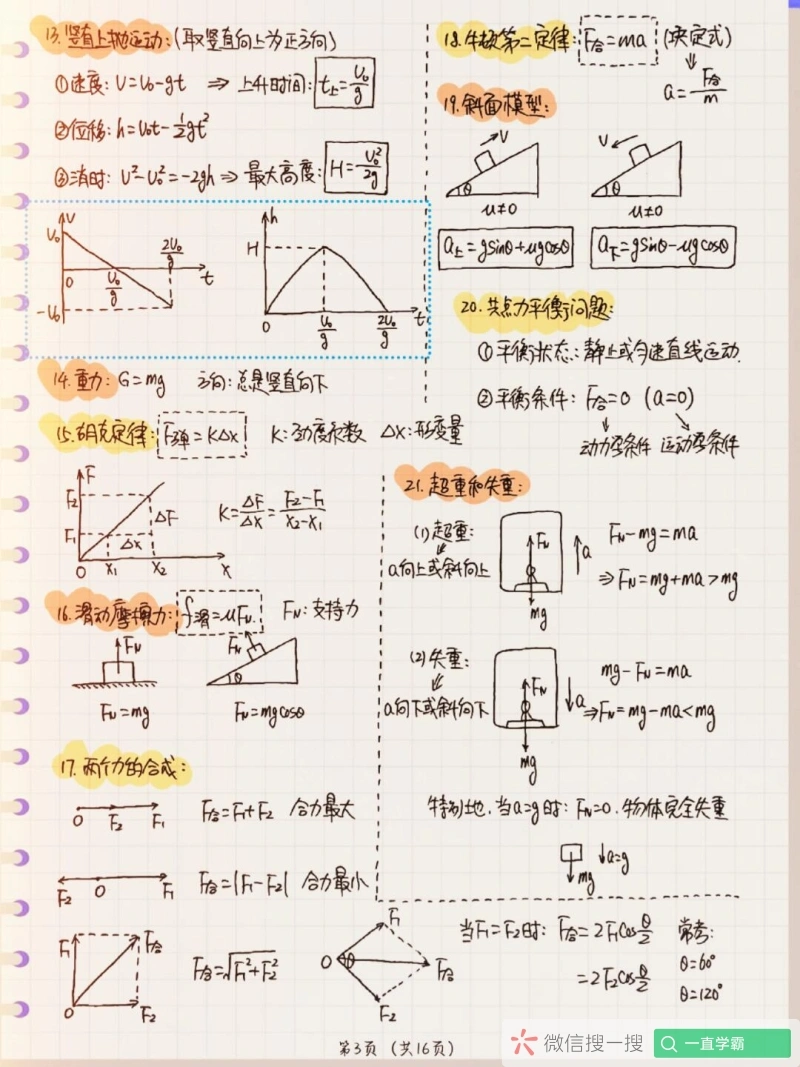 13. 竖直上抛运动:(取竖直向上为正方向)
①速度: V=V₀-gt ⇒ 上升时间: t上=V₀/g
②位移: h=V₀t-½gt²
③消时: V²-V₀²=-2gh ⇒ 最大高度: H=V₀²/2g
V
V₀
0
V₀/g
2V₀/g
t
-V₀
h
H
0
V₀/g
2V₀/g
t
14. 重力: G=mg 方向: 总是竖直向下
15. 胡克定律: F弹=KΔx K: 劲度系数 Δx: 形变量
F
F₂
F₁
ΔF
Δx
0
x₁
x₂
x
K=ΔF/Δx=(F₂-F₁)/(x₂-x₁)
16. 滑动摩擦力: f滑=μFN. FN: 支持力
FN
FN
θ
FN=mg
FN=mgcosθ
17. 两个力的合成:
0 F₂ F₁
F合=F₁+F₂ 合力最大
F₂ 0 F₁
F合=|F₁-F₂| 合力最小
F₁
F合
0
F₂
F合=√(F₁²+F₂²)
F₁
0
θ
F合
F₂
18. 牛顿第二定律: F合=ma (决定式)
a=F合/m
19. 斜面模型:
V
θ
μ≠0
a上=gsinθ+μgcosθ
V
θ
μ≠0
a下=gsinθ-μgcosθ
20. 共点力平衡问题:
①平衡状态: 静止或匀速直线运动.
②平衡条件: F合=0 (a=0)
动力学条件 运动学条件
21. 超重和失重:
(1)超重:
a向上或斜向上
FN
a
mg
FN-mg=ma
⇒FN=mg+ma>mg
(2)失重:
a向下或斜向下
FN
a
mg
mg-FN=ma
⇒FN=mg-ma<mg
特别地, 当a=g时: FN=0. 物体完全失重
↓a=g
mg
当F₁=F₂时: F合=2F₁cosθ/2 常考:
=2F₂cosθ/2 θ=60°
θ=120°
第3页 (共16页)
微信搜一搜
一直学霸